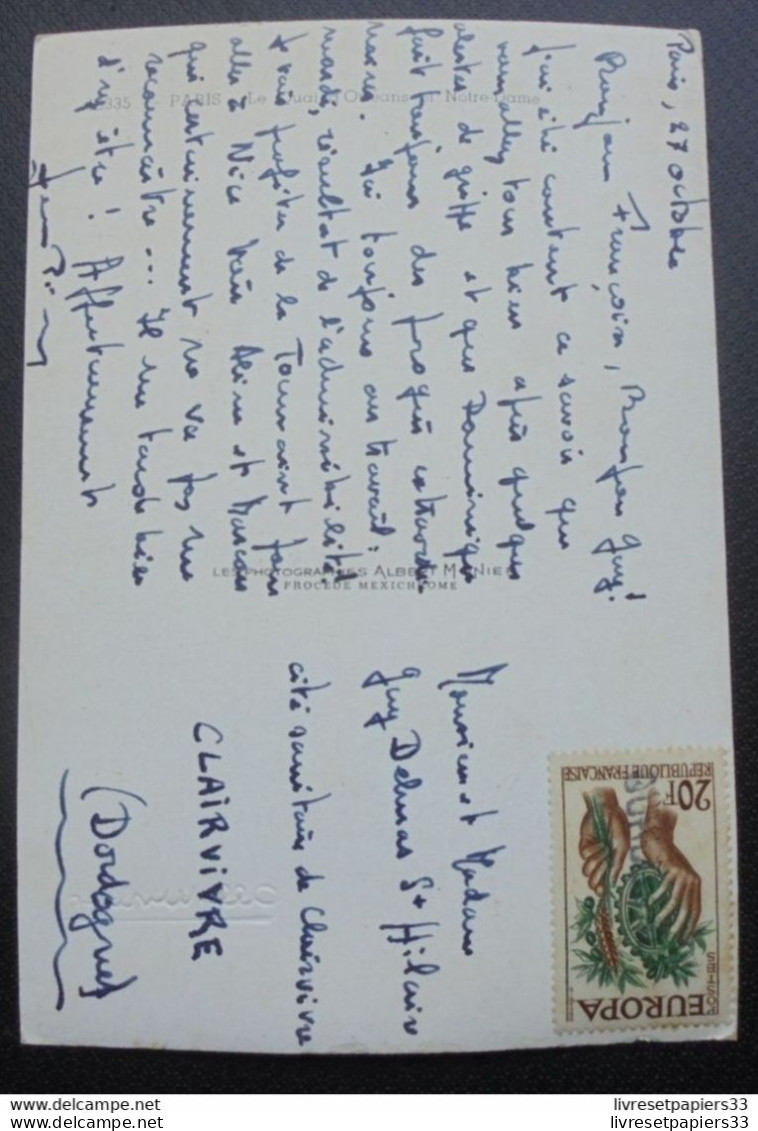 Paris, 27 octobre
Bonjour Françoise, Bonjour Guy!
J'ai été content de savoir que
vous alliez tous bien après quelques
alertes de grippe et que Dominique
fait toujours des progrès extraordi-
naires. Suis toujours au travail:
résultat de l'admissibilité!
Je vais profiter de la Toussaint pour
aller à Nice
qui certainement ne va pas me
reconnaître... Il me tarde bien
d'y être! Affectueusement
335 PARIS - Le Quai d'Orléans et Notre-Dame
LES PHOTOGRAPHIES ALBERT MONIER
PROCEDE MEXICHROME
Monsieur et Madame
Guy Delmas St Hilaire
cité sanitaire de Clairvivre
CLAIRVIVRE
(Dordogne)
20F
REPUBLIQUE FRANÇAISE
POSTES
EUROPA
livresetpapiers33
livresetpapiers33
livresetpapiers33
livresetpapiers33